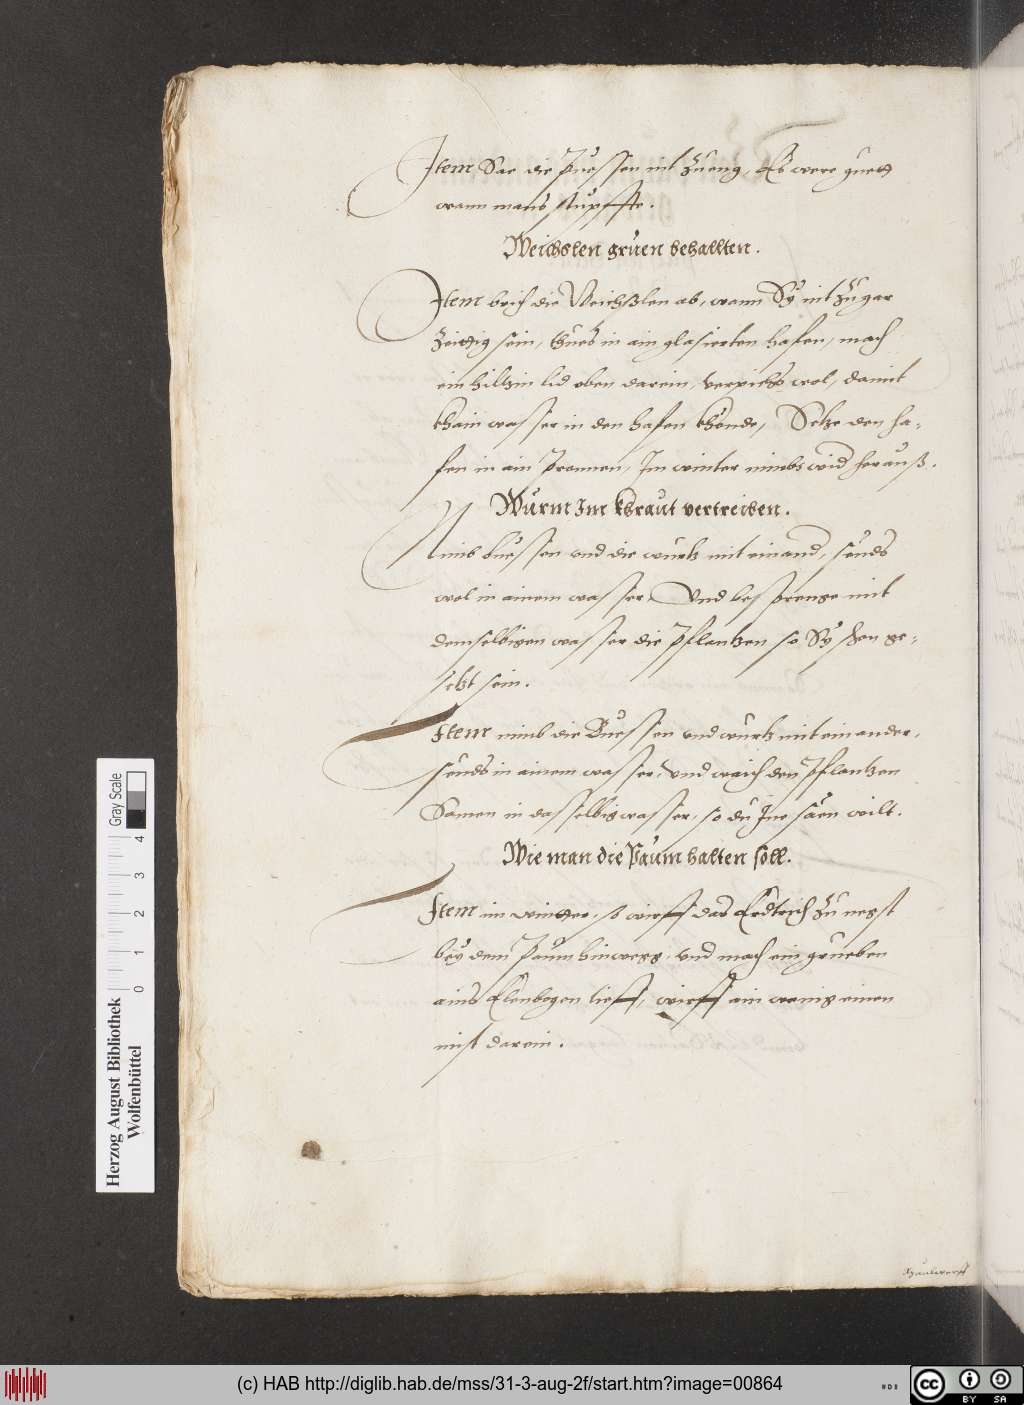 Item Säe die Puessen nit zu eng, Es were guett
wann mans stupffte.
Weichslen grüen behallten.
Item brich die Weichßlen ab, wann Sy nit zu gar
zeittig sein, thues in ain glasierten hafen, mach
ein hiltzin lid oben darein, verpichs wol, damit
khain wasser in den hafen khönde, Setze den ha-
fen in ain Prennen, Im winter nimbs wid herauß.
Würm Im khraut vertreiben.
Nimb buessen und die wurtz mit einand, seuds
wol in ainem wasser, Und besprenge mit
demselbigen wasser die Pflantzen so Sy schon ge-
setzt sein.
Item nimb die Buessen und wurtz mit einander,
seuds in ainem wasser, und waich den Pflantzen
Samen in dasselbig wasser, so du Ine säen wilt.
Wie man die Päum halten soll.
Item im winter, so wirff das Erdtrich zu negst
bey dem Paum hinwegg, und mach ein grueben
ains Elenbogen tieff, wirff ain wenig einen
mist darein.
Herzog August Bibliothek
Wolfenbüttel
0 1 2 3 4
Gray Scale
(c) HAB http://diglib.hab.de/mss/31-3-aug-2f/start.htm?image=00864
cc BY SA